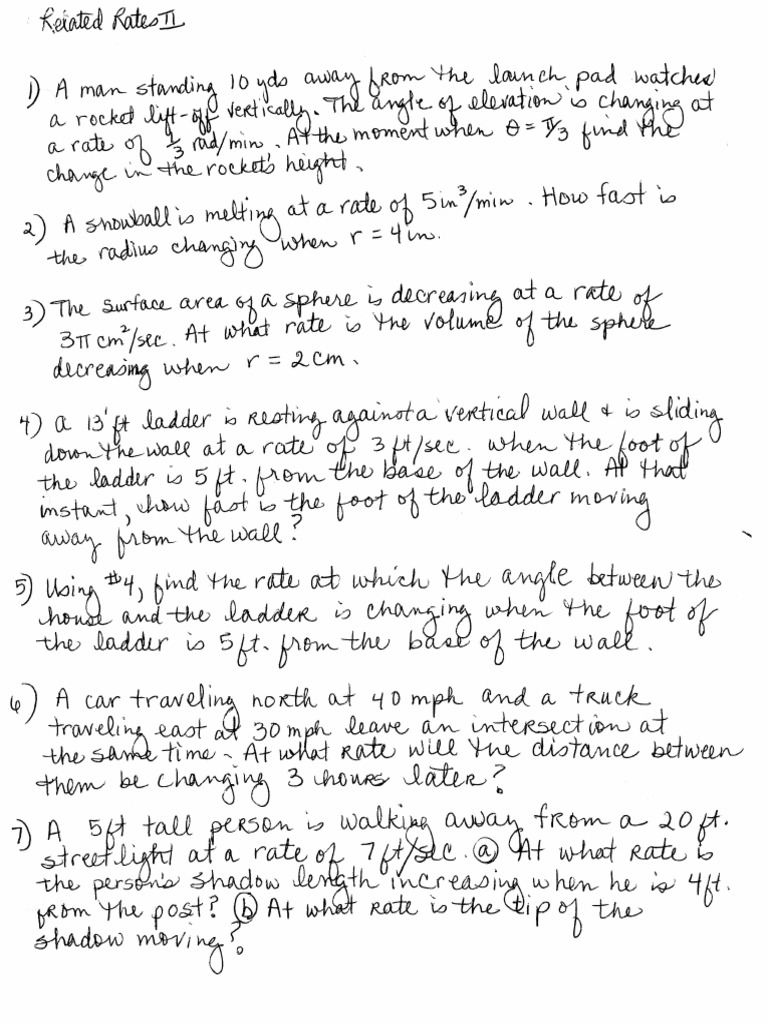 Related Rates II
1) A man standing 10 yds away from the launch pad watches
a rocket lift-off vertically. The angle of elevation is changing at
a rate of 1/3 rad/min. At the moment when θ = π/3 find the
change in the rocket's height.
2) A snowball is melting at a rate of 5in³/min. How fast is
the radius changing when r = 4in.
3) The surface area of a sphere is decreasing at a rate of
3π cm²/sec. At what rate is the volume of the sphere
decreasing when r = 2cm.
4) A 13' ft ladder is resting against a vertical wall & is sliding
down the wall at a rate of 3 ft/sec. when the foot of
the ladder is 5 ft. from the base of the wall. At that
instant, how fast is the foot of the ladder moving
away from the wall?
5) Using #4, find the rate at which the angle between the
house and the ladder is changing when the foot of
the ladder is 5ft. from the base of the wall.
6) A car traveling north at 40 mph and a truck
traveling east at 30 mph leave an intersection at
the same time. At what rate will the distance between
them be changing 3 hours later?
7) A 5ft tall person is walking away from a 20 ft.
streetlight at a rate of 7 ft/sec. (a) At what rate is
the person's shadow length increasing when he is 4ft.
from the post? (b) At what rate is the tip of the
shadow moving?